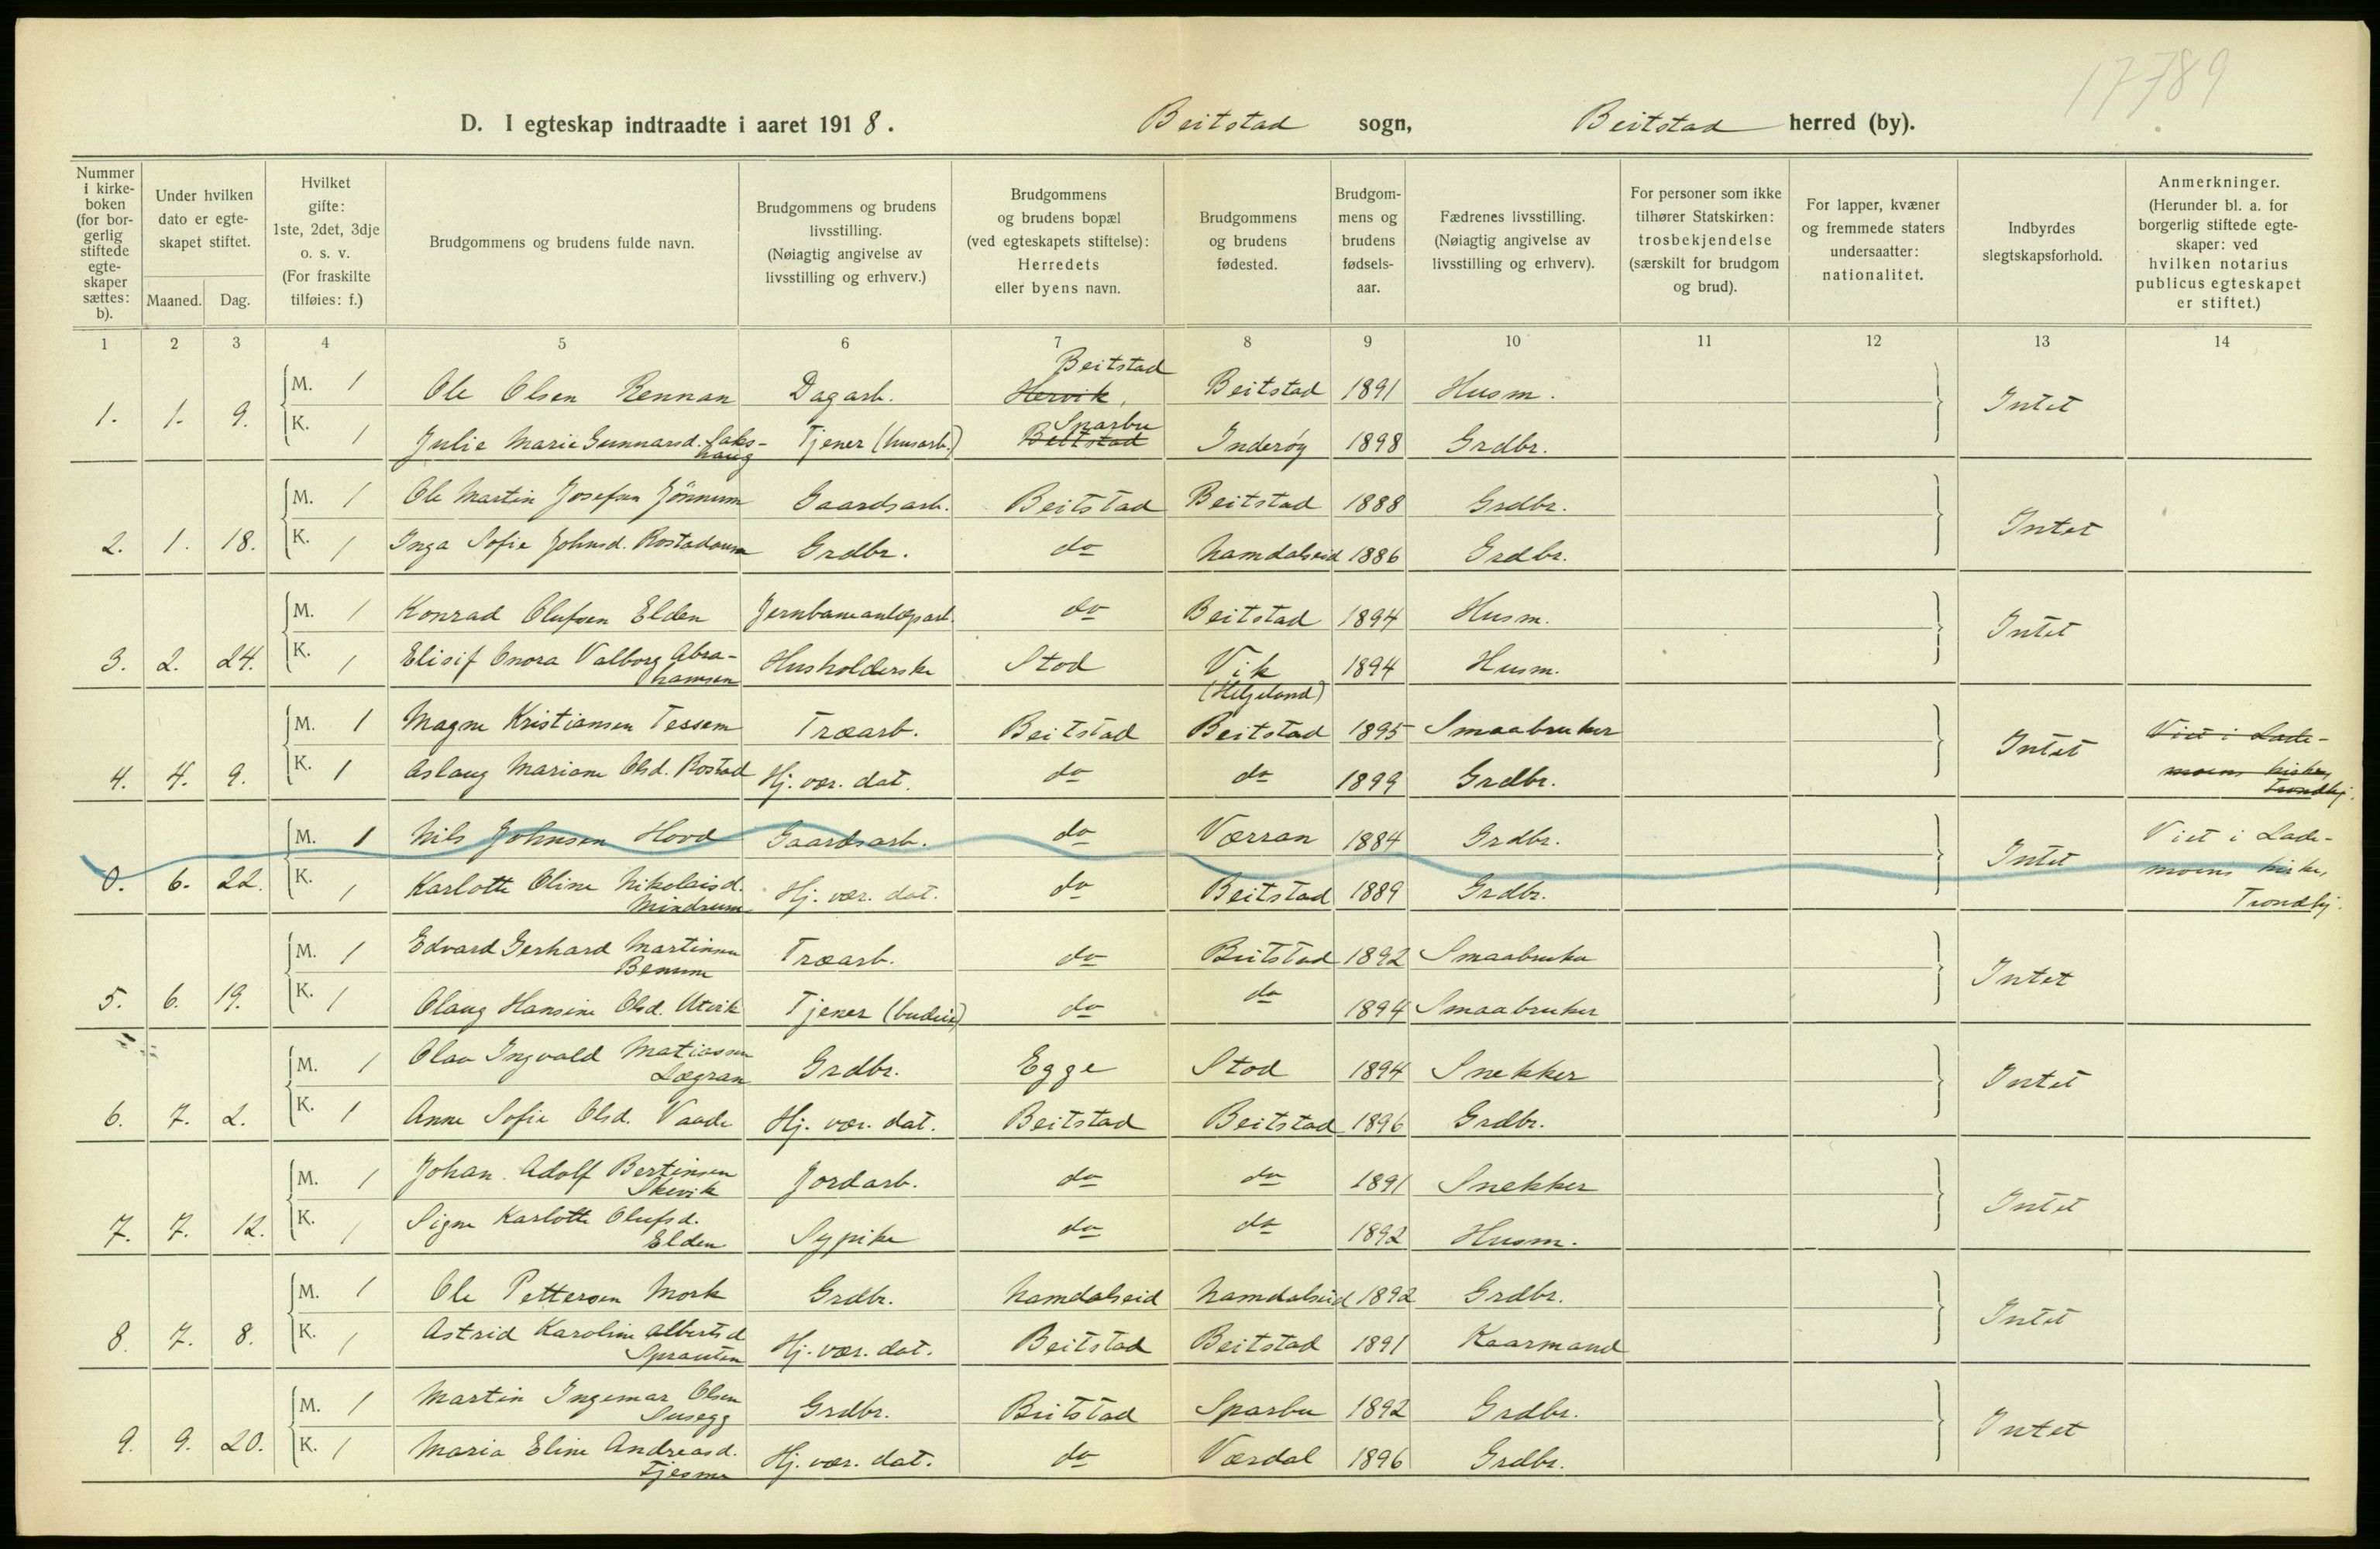 17789
D. I egteskap indtraadte i aaret 1918. Beitstad sogn, Beitstad herred (by).
Nummer i kirke-boken (for bor-gerlig stiftede egte-skaper sættes: b).
Under hvilken dato er egte-skapet stiftet.
Maaned. Dag.
Hvilket gifte: 1ste, 2det, 3dje o. s. v. (For fraskilte tilføies: f.)
Brudgommens og brudens fulde navn.
Brudgommens og brudens livsstilling. (Nøiagtig angivelse av livsstilling og erhverv.)
Brudgommens og brudens bopæl (ved egteskapets stiftelse): Herredets eller byens navn.
Brudgommens og brudens fødested.
Brudgom-mens og brudens fødsels-aar.
Fædrenes livsstilling. (Nøiagtig angivelse av livsstilling og erhverv).
For personer som ikke tilhører Statskirken: trosbekjendelse (særskilt for brudgom og brud).
For lapper, kvæner og fremmede staters undersaatter: nationalitet.
Indbyrdes slegtskapsforhold.
Anmerkninger. (Herunder bl. a. for borgerlig stiftede egte-skaper: ved hvilken notarius publicus egteskapet er stiftet.)
1 2 3 4 5 6 7 8 9 10 11 12 13 14
Beitstad
M. 1 Ole Olsen Rennan Dagarb. Hervik, Beitstad 1891 Husm. Intet
Sparbu
1. 1. 9. K. 1 Julie Marie Gunnarsd. Saks- Tjener (husarb.) Beitstad Inderøy 1898 Grdbr.
haug
M. 1 Ole Martin Josefsen Jønnum Gaardsarb. Beitstad Beitstad 1888 Grdbr. Intet
2. 1. 18. K. 1 Inga Sofie Johnsd. Rostadaunn Grdbr. do Namdalseid 1886 Grdbr.
M. 1 Konrad Olufsen Elden Jernbaneanlægsarb. do Beitstad 1894 Husm. Intet
3. 2. 24. K. 1 Elisif Onora Valborg Abra- Husholderske Stod Vik 1894 Husm.
hamsen (Helgeland)
M. 1 Magne Kristiansen Tessem Træarb. Beitstad Beitstad 1895 Smaabruker Intet Viet i Lade-
4. 4. 9. K. 1 Aslaug Mariane Olsd. Rostad Hj. vær. dat. do do 1899 Grdbr. moens kirke,
Trondhj.
M. 1 Nils Johnsen Hovd Gaardsarb. do Værran 1884 Grdbr. Intet Viet i Lade-
0. 6. 22. K. 1 Karlotte Oline Nikolaisd. Hj. vær. dat. do Beitstad 1889 Grdbr. moens kirke,
Mindrum Trondhj.
M. 1 Edvard Gerhard Martinsen Træarb. do Beitstad 1892 Smaabruker Intet
Benum
5. 6. 19. K. 1 Olaug Hansine Olsd. Utvik Tjener (budeie) do do 1894 Smaabruker
M. 1 Olav Ingvald Matiassen Grdbr. Egge Stod 1894 Snekker Intet
Lægran
6. 7. 2. K. 1 Anne Sofie Olsd. Vaade Hj. vær. dat. Beitstad Beitstad 1896 Grdbr.
M. 1 Johan Adolf Bertinsen Jordarb. do do 1891 Snekker Intet
Skevik
7. 7. 12. K. 1 Signe Karlotte Olufsd. Sypike do do 1892 Husm.
Elden
M. 1 Ole Pettersen Mork Grdbr. Namdalseid Namdalseid 1892 Grdbr. Intet
8. 7. 8. K. 1 Astrid Karoline Albertsd Hj. vær. dat. Beitstad Beitstad 1891 Kaarmand
Sprauten
M. 1 Martin Ingemar Olsen Grdbr. Beitstad Sparbu 1892 Grdbr. Intet
Susegg
9. 9. 20. K. 1 Maria Eline Andreasd. Hj. vær. dat. do Værdal 1896 Grdbr.
Tjesme